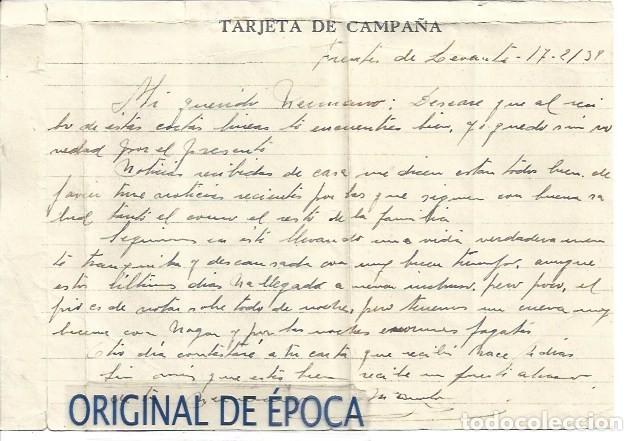 TARJETA DE CAMPAÑA
Frente de Levante - 17-2/39
Mi querido hermano: Deseare que al reci
bo de estas cortas lineas te encuentres bien, yo quedo sin no
vedad por el presente
Noticias recibidas de casa me dicen estan todos bien, de
tuve noticias recientes por las que siguen con buena sa
lud tanto el como el resto de la familia
Seguimos en este llevando una vida verdaderamen
te tranquila y descansada con muy buen tiempo, aunque
estos ultimos dias ha llegado a nevar incluso, pero poco, el
frio es de notar sobre todo de noche, pero tenemos una cueva muy
buena con hogar y por las noches enormes fogatas
Otro día contestaré a tu carta que recibí hace dias
Sin mas que estes bien recibe un fuerte abrazo
de tu
ORIGINAL DE ÉPOCA
todocoleccion
todocoleccion.net